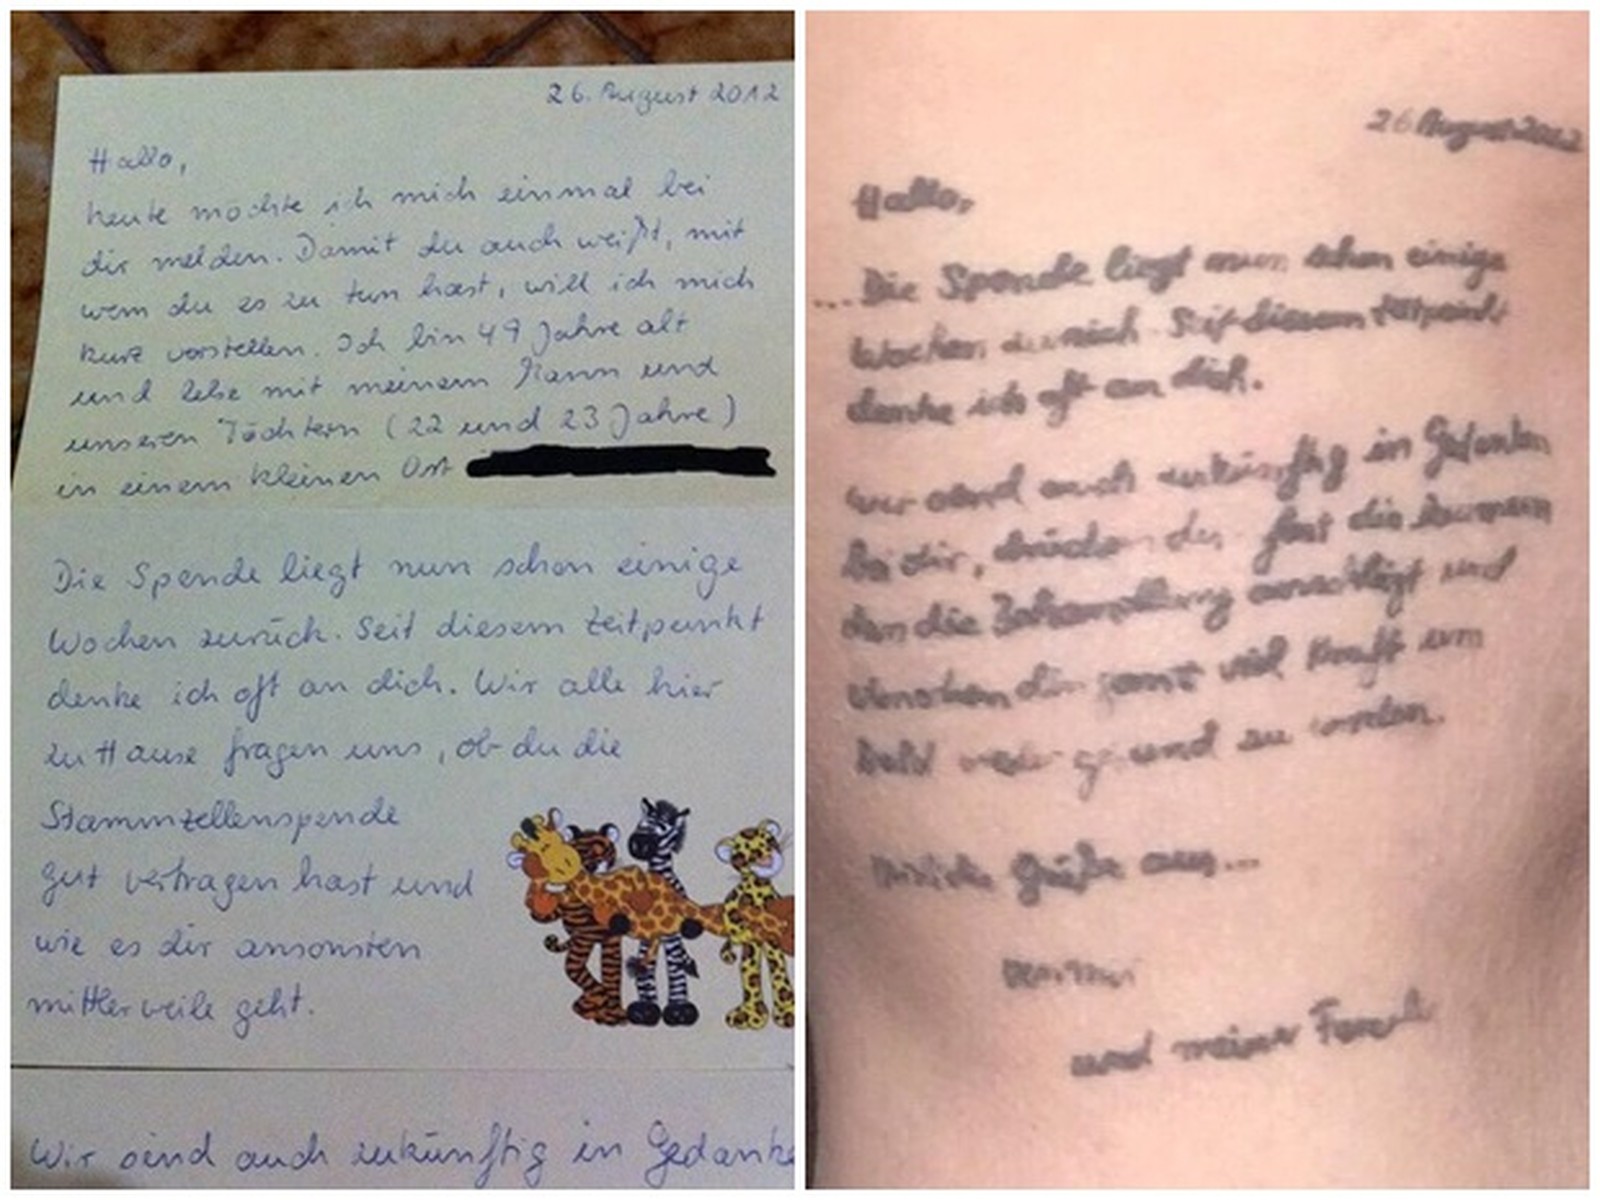 26. August 2012
Hallo,
heute möchte ich mich einmal bei
dir melden. Damit du auch weißt, mit
wem du es zu tun hast, will ich mich
kurz vorstellen. Ich bin 49 Jahre alt
und lebe mit meinem Mann und
unseren Töchtern (22 und 23 Jahre)
in einem kleinen Ort
Die Spende liegt nun schon einige
Wochen zurück. Seit diesem Zeitpunkt
denke ich oft an dich. Wir alle hier
zu Hause fragen uns, ob du die
Stammzellenspende
gut vertragen hast und
wie es dir ansonsten
mittlerweile geht.
Wir sind auch zukünftig in Gedanke
26 August 2012
Hallo,
...Die Spende liegt nun schon einige
Wochen zurück. Seit diesem Zeitpunkt
denke ich oft an dich.
wir sind auch zukünftig in Gedanken
bei dir, drücken dir fest die Daumen
das die Behandlung anschlägt und
wünschen dir ganz viel Kraft um
bald wieder gesund zu werden.
Grüße aus...
und meiner